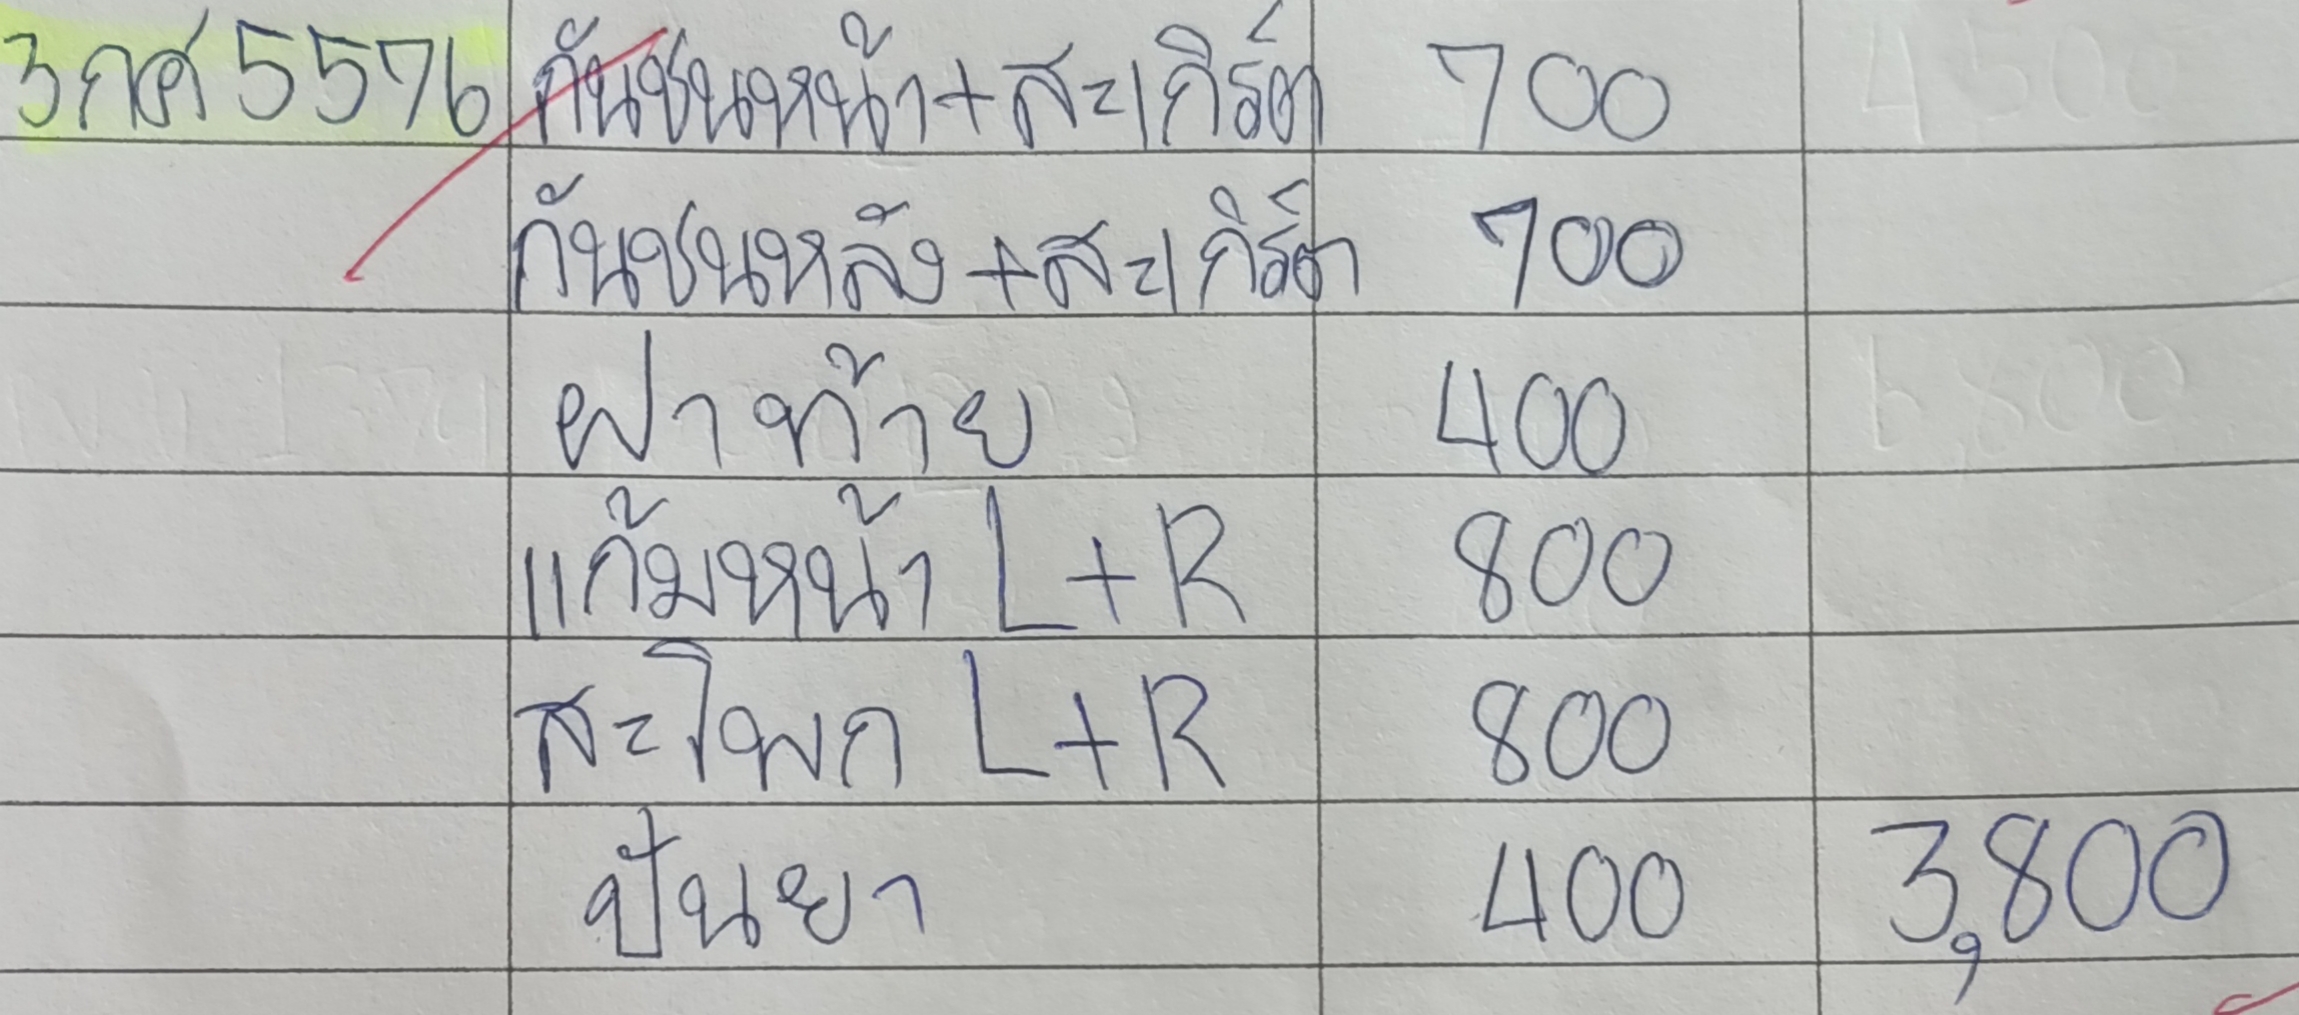 3กศ 5576 กันชนหน้า+สะเกิร์ต 700
กันชนหลัง+สะเกิร์ต 700
ฝาท้าย 400
แก้มหน้า L+R 800
สะโพก L+R 800
ปั่นยา 400 3,800